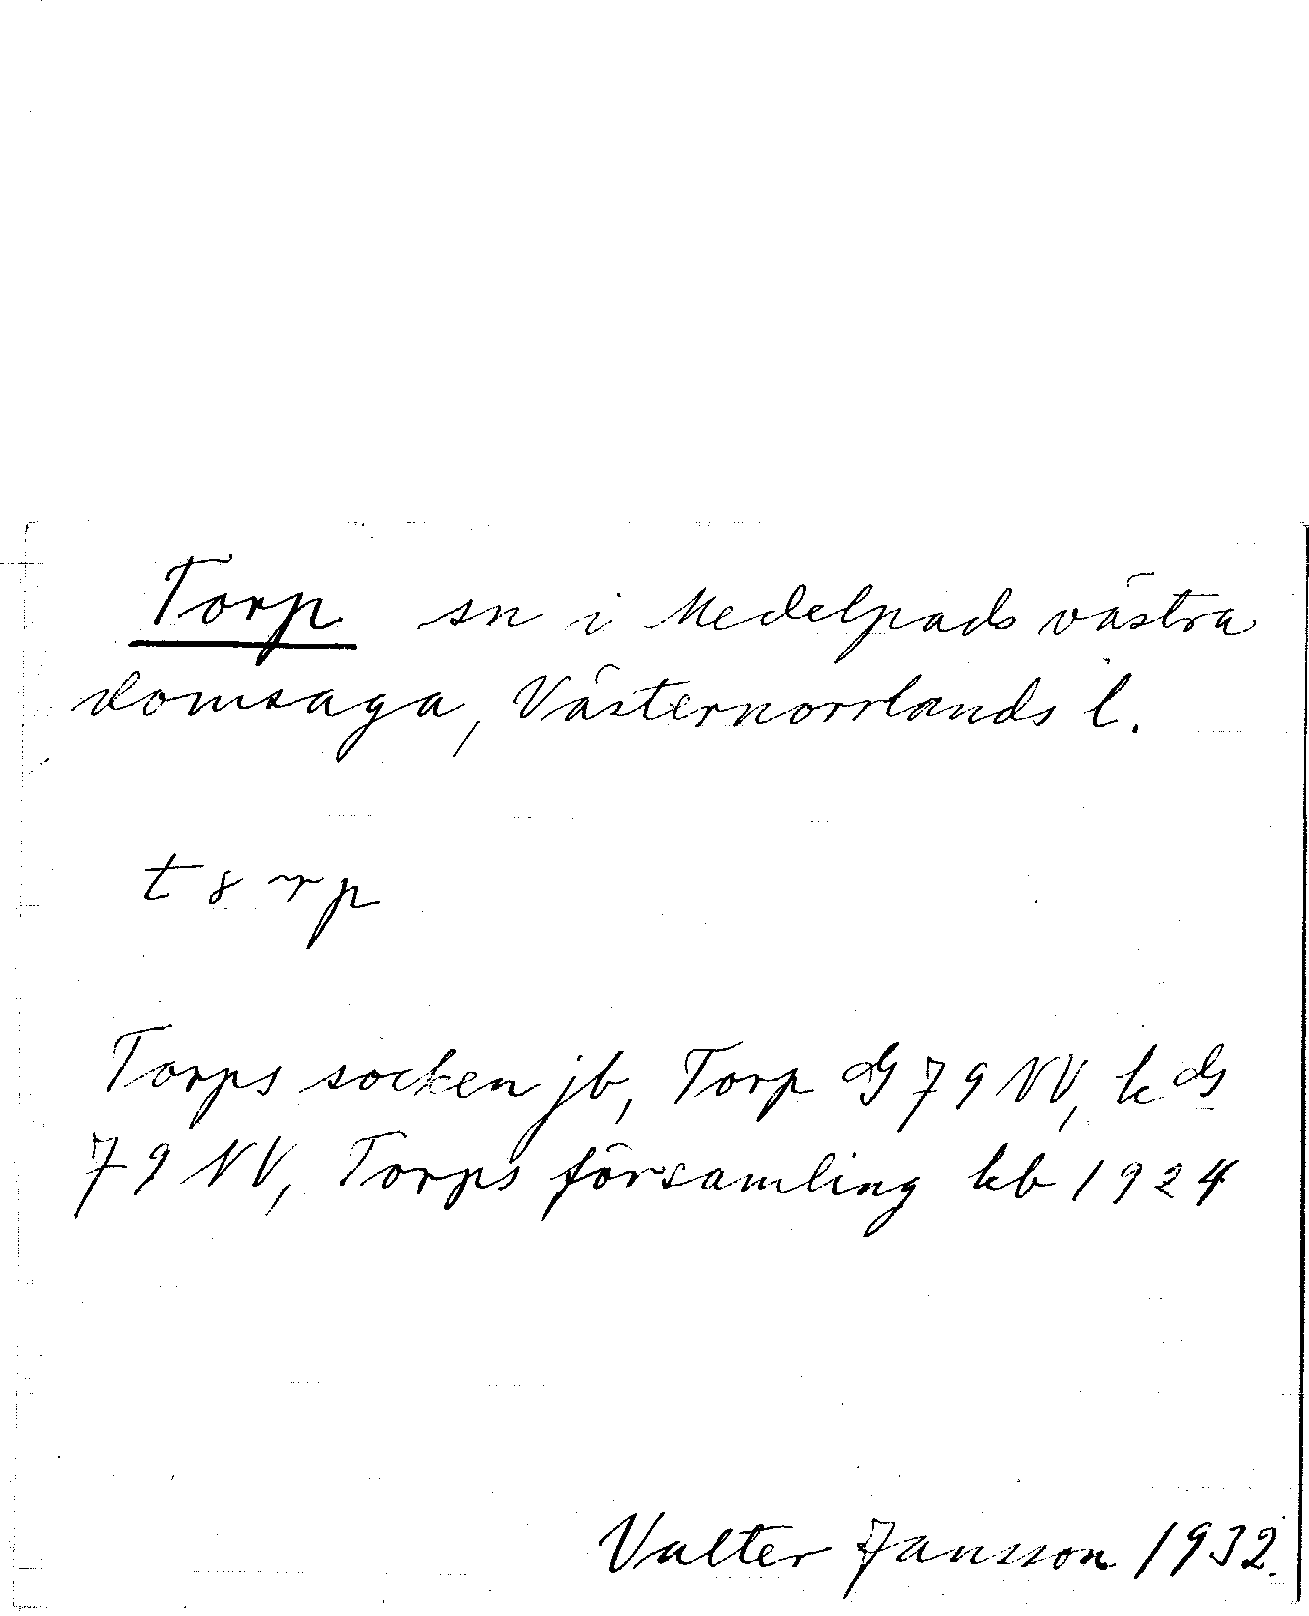 Torp sn i Medelpads västra
domsaga, Västernorrlands l.
t 8 r p
Torps socken jb, Torp GS 79 NV, k GS
79 NV, Torps församling kb 1924
Valter Jansson 1932.